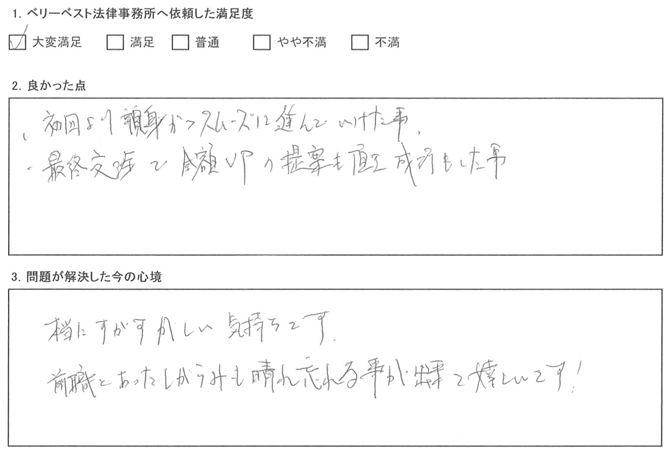 1. ベリーベスト法律事務所へ依頼した満足度
大変満足 満足 普通 やや不満 不満
2. 良かった点
・初回より親身かつスムーズに進んでいけた事、
・最終交渉で金額UPの提案も頂き成功もした事
3. 問題が解決した今の心境
本当にすがすがしい気持ちです。
前職とあったしがらみも晴れ忘れる事が出来て嬉しいです!